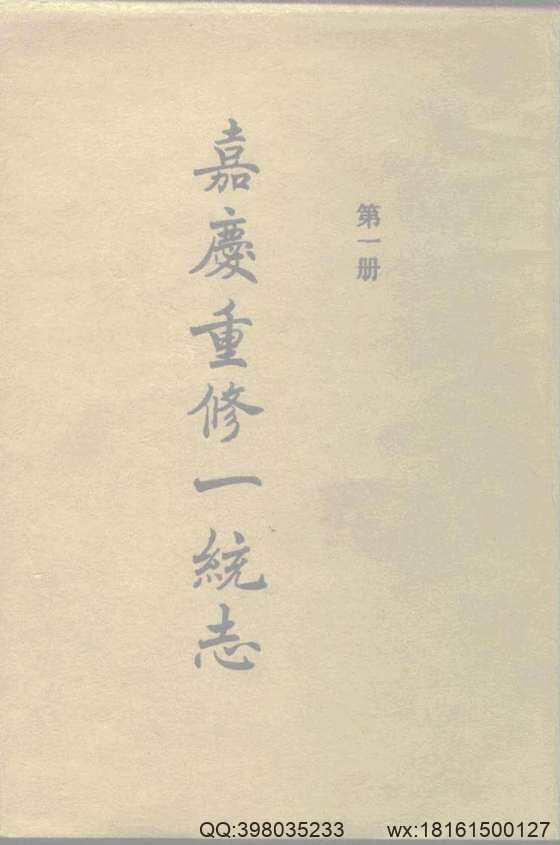 第一册
嘉慶重修一統志
QQ:398035233 wx:18161500127